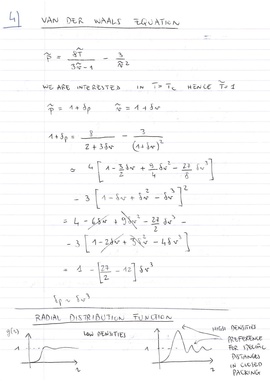 4) VAN DER WAALS EQUATION
p̃ = 8T̃/(3ṽ-1) - 3/ṽ²
WE ARE INTERESTED IN T=Tc HENCE T̃=1
p̃ = 1+δp ṽ = 1+δv
1+δp = 8/(2+3δv) - 3/(1+δv)²
≈ 4[1-3/2 δv + 9/4 δv² - 27/8 δv³]
- 3[1-δv+δv²-δv³]²
= 4 - 6δv + 9δv² - 27/2 δv³ -
- 3[1-2δv+3δv²-4δv³]
= 1 - [27/2 - 12]δv³
δp ∼ δv³
RADIAL DISTRIBUTION FUNCTION
g(r) LOW DENSITIES HIGH DENSITIES
1 1 PREFERENCE
FOR SPECIFIC
DISTANCES
IN CLOSED
PACKING
r r